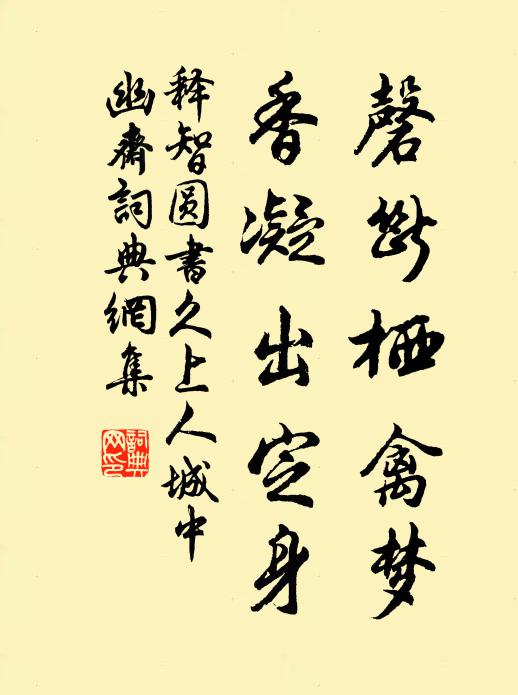 磬断栖禽梦
香凝出定身
释智圆书久上人城中
幽斋詞典網集
詞典网印